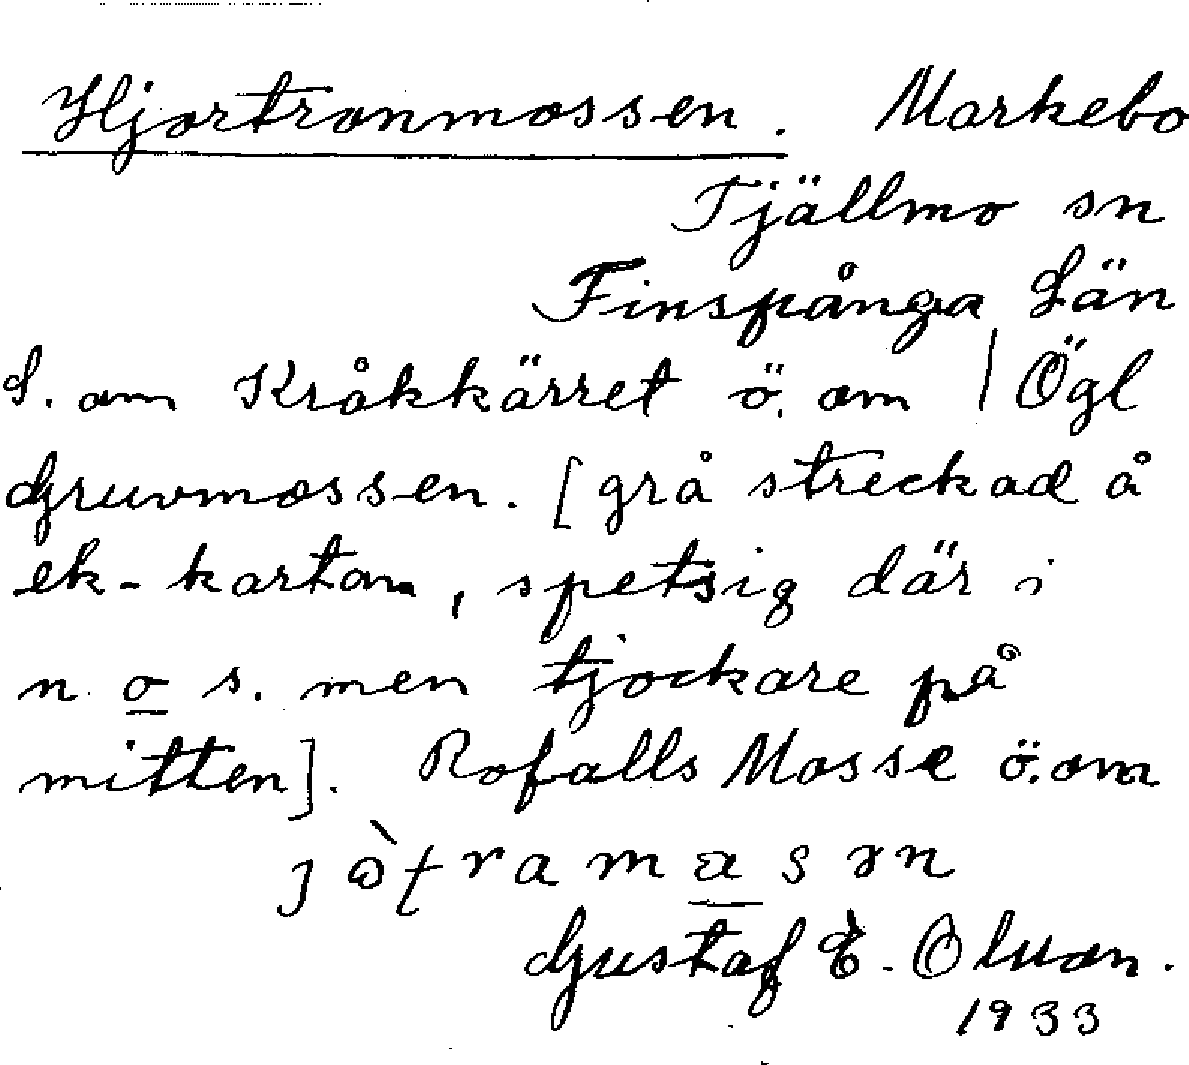 Hjortronmossen. Markebo
Tjällmo sn
Finspånga Län
S. om Kråkkärret ö. om | Ögl
Gruvmossen. [grå streckad å
ek-kartan, spetsig där i
n. o s. men tjockare på
mitten]. Rofalls Mosse ö. om
Gustaf E. Olson.
1933